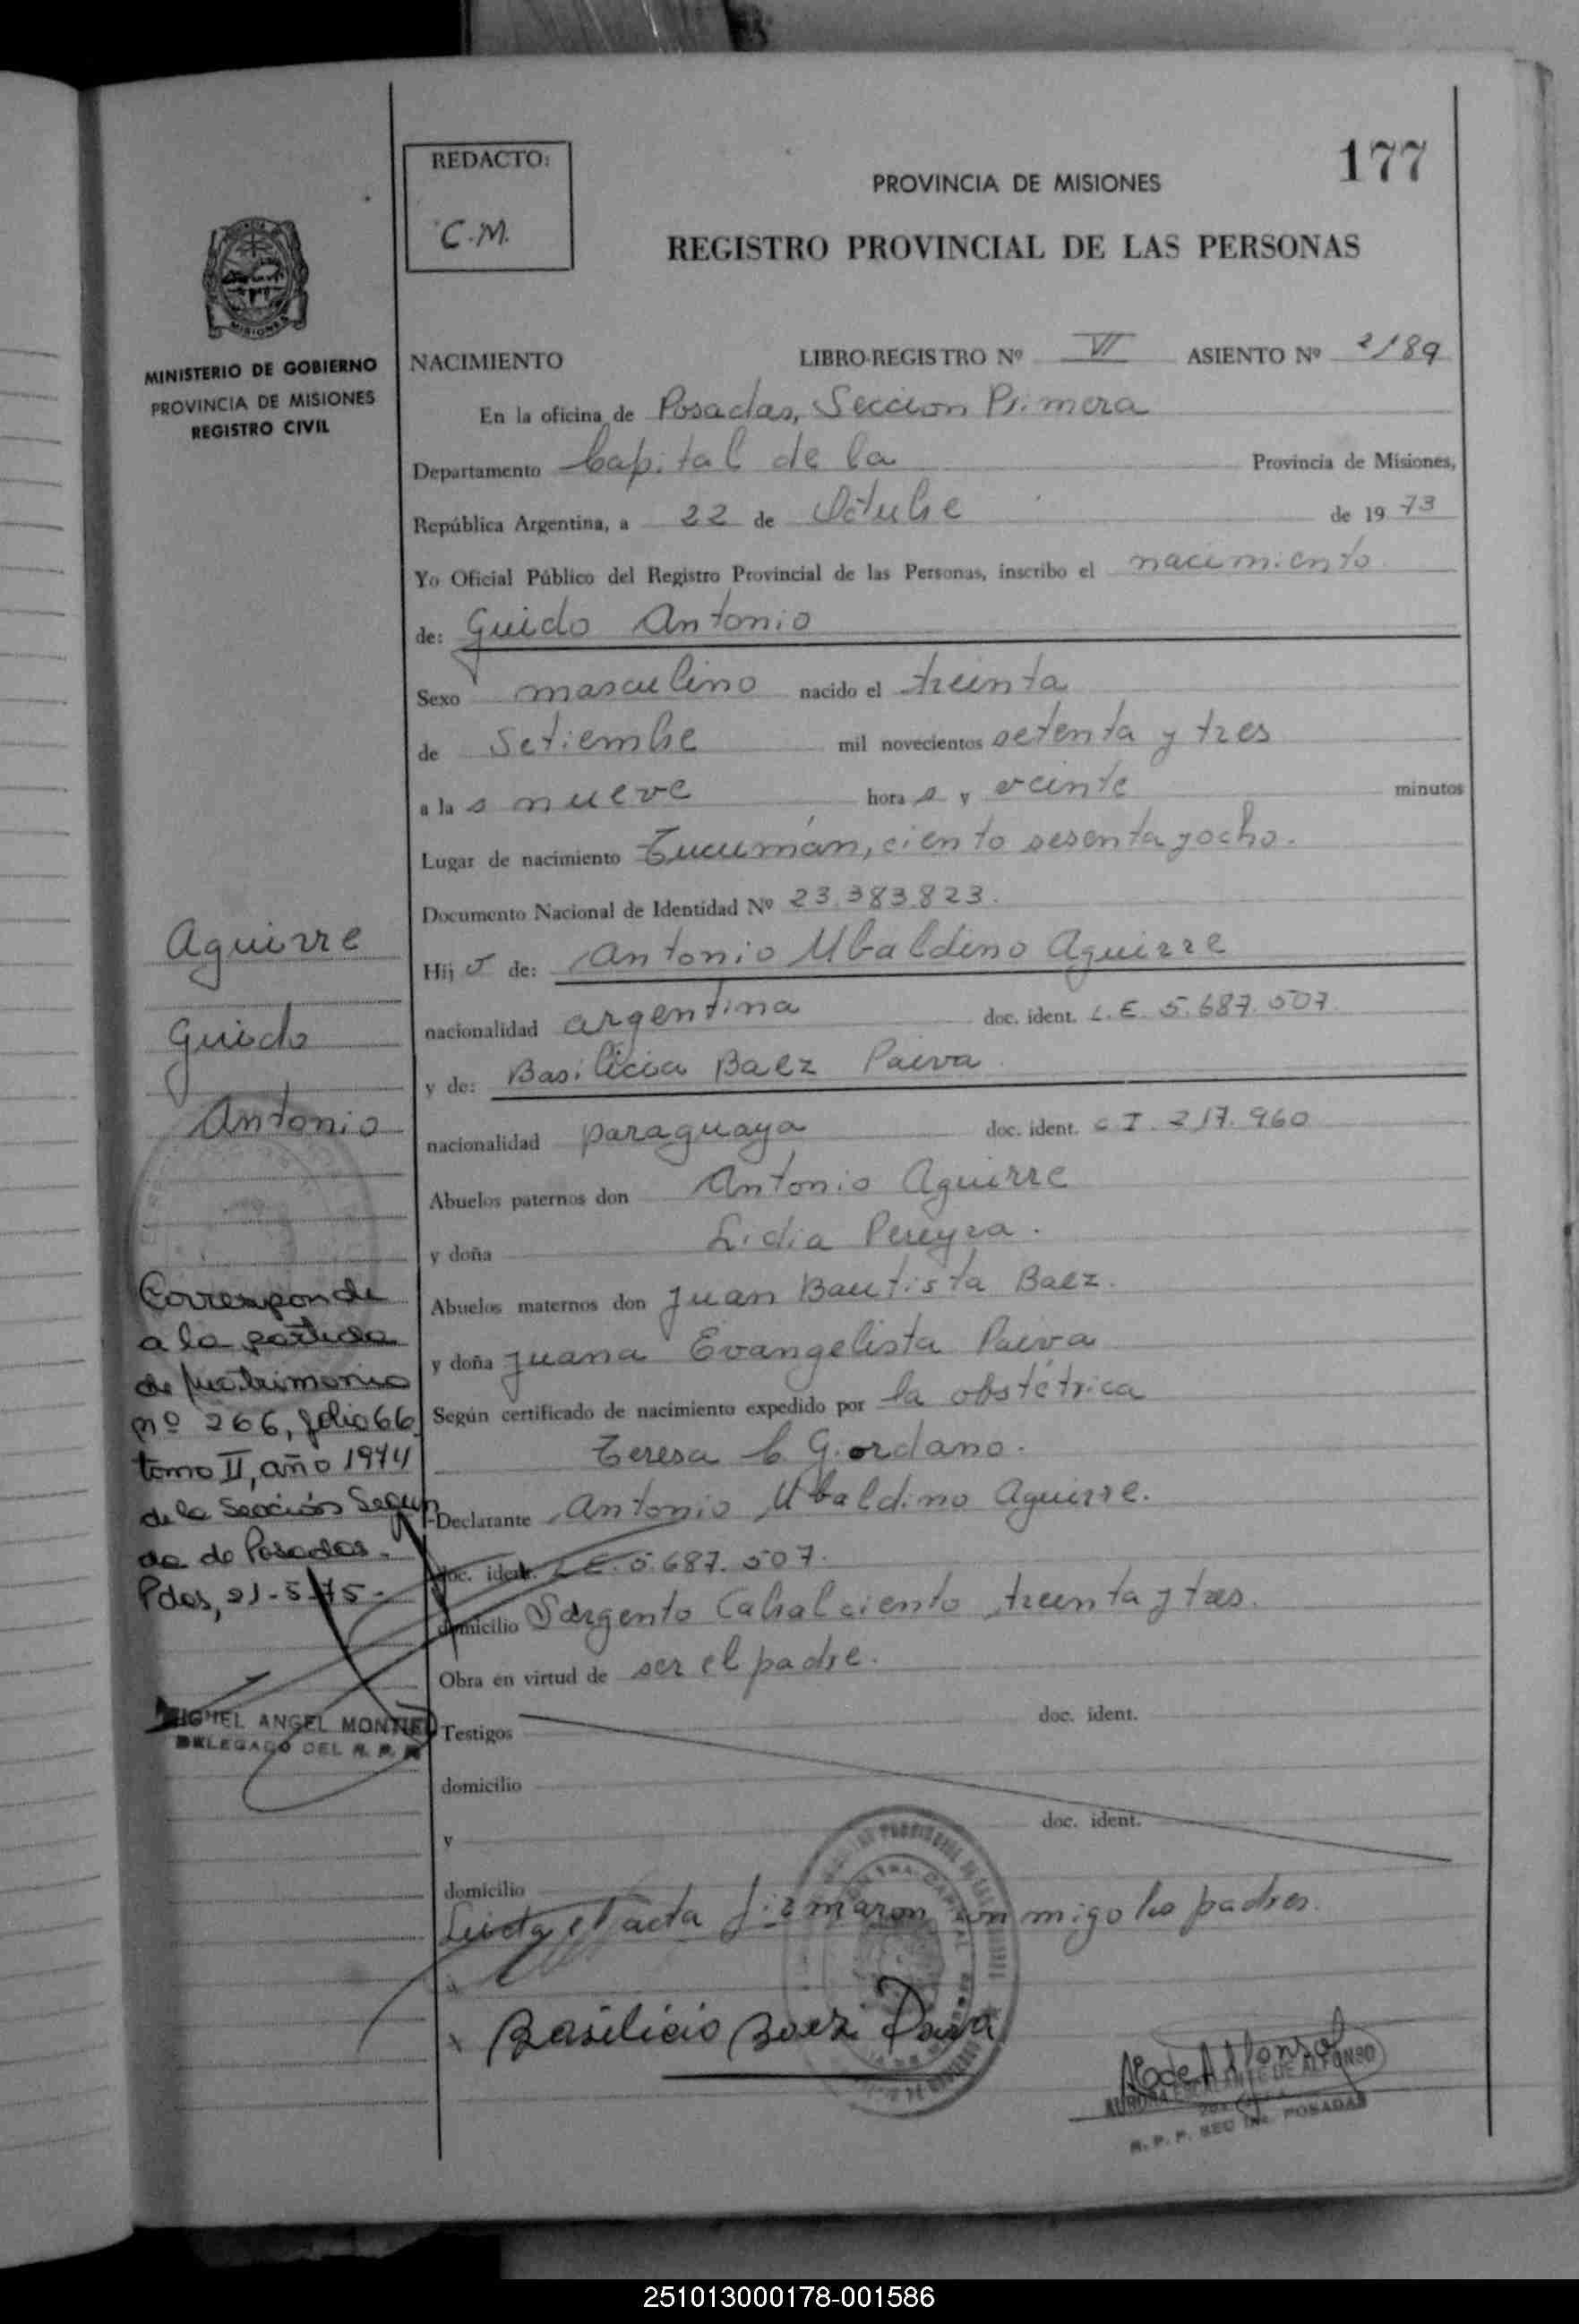 177
REDACTO:
C.M.
PROVINCIA DE MISIONES
REGISTRO PROVINCIAL DE LAS PERSONAS
MISIONES
MINISTERIO DE GOBIERNO
PROVINCIA DE MISIONES
REGISTRO CIVIL
NACIMIENTO LIBRO-REGISTRO Nº VI ASIENTO Nº 2189
En la oficina de Posadas, Seccion Primera
Departamento Capital de la Provincia de Misiones,
República Argentina, a 22 de Octubre de 1973
Yo Oficial Público del Registro Provincial de las Personas, inscribo el nacimiento
de: Guido Antonio
Sexo masculino nacido el treinta
de Setiembre mil novecientos setenta y tres
a las nueve horas y veinte minutos
Lugar de nacimiento Tucumán, ciento sesenta y ocho.
Documento Nacional de Identidad Nº 23.383.823.
Hijo de: Antonio Ubaldino Aguirre
nacionalidad argentina doc. ident. L.E. 5.687.507.
y de: Basilicia Baez Paiva
nacionalidad paraguaya doc. ident. C.I. 217.960
Abuelos paternos don Antonio Aguirre
y doña Lidia Pereyra.
Abuelos maternos don Juan Bautista Baez.
y doña Juana Evangelista Paiva
Según certificado de nacimiento expedido por la obstétrica
Teresa C. Giordano.
Declarante Antonio Ubaldino Aguirre.
doc. ident. L.E. 5.687.507.
domicilio Sargento Cabral ciento treinta y tres.
Obra en virtud de ser el padre.
Testigos doc. ident.
domicilio
y doc. ident.
domicilio
Leida el acta firmaron conmigo los padres.
Basilicia Baez Paiva
AURORA ESCALANTE DE ALFONSO
R. P. P. SEC 1ra. POSADAS
Aguirre
Guido
Antonio
Corresponde
a la partida
de matrimonio
nº 266, folio 66,
tomo II, año 1974
de la Sección Segun
da de Posadas.-
Pdas, 21-5-75-
MIGUEL ANGEL MONTIEL
DELEGADO DEL R. P. P.
251013000178-001586